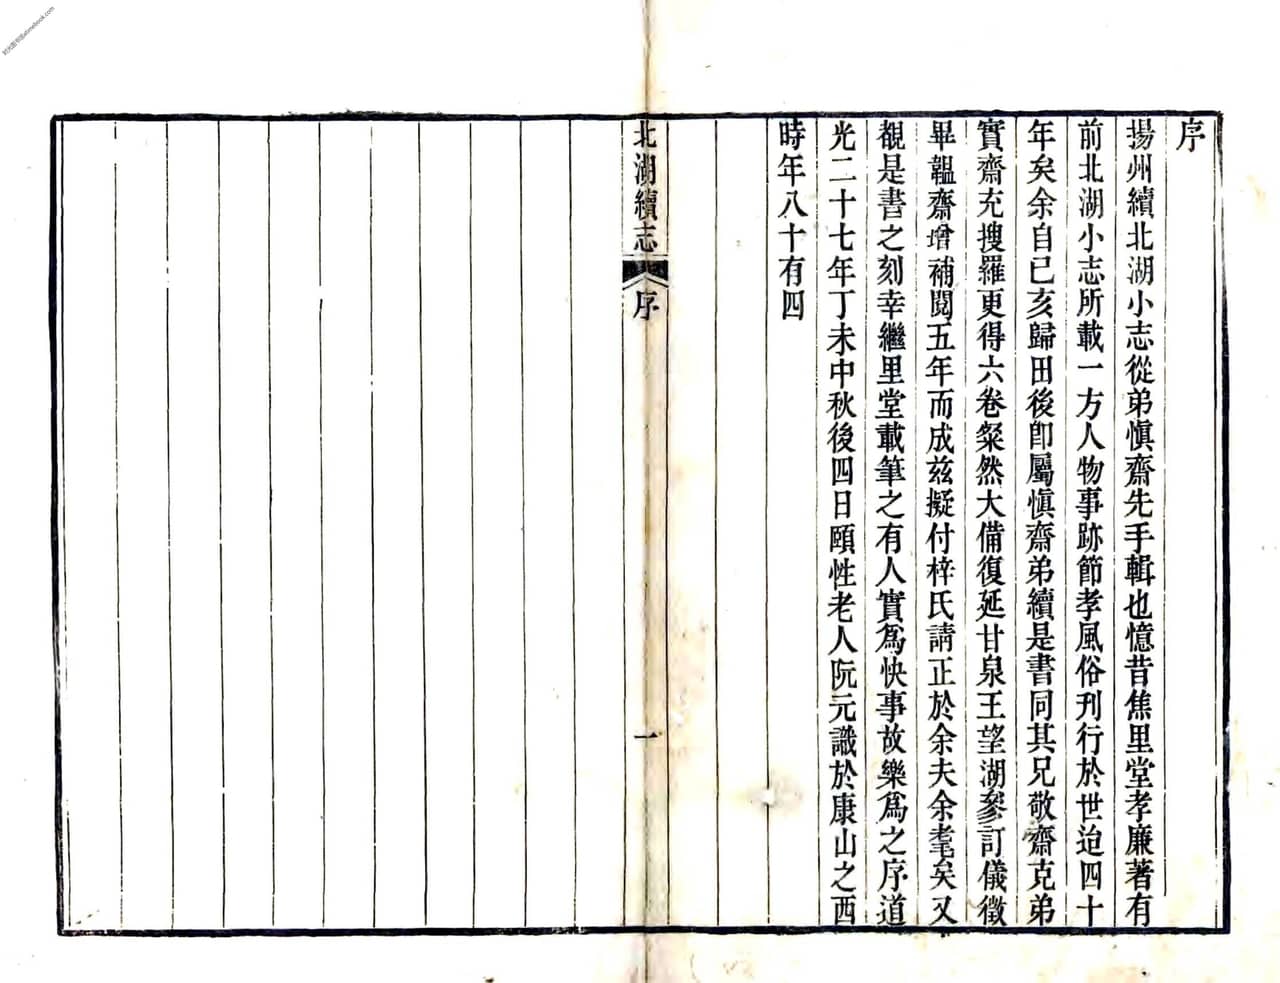 序
揚州續北湖小志從弟愼齋先手輯也憶昔焦里堂孝廉著有
前北湖小志所載一方人物事跡節孝風俗刊行於世迨四十
年矣余自己亥歸田後卽屬愼齋弟續是書同其兄敬齋克弟
實齋充搜羅更得六卷粲然大備復延甘泉王望湖參訂儀徵
畢韞齋增補閱五年而成兹擬付梓氏請正於余夫余耄矣又
覩是書之刻幸繼里堂載筆之有人實爲快事故樂爲之序道
光二十七年丁未中秋後四日頤性老人阮元識於康山之西
時年八十有四
北湖續志 序 一